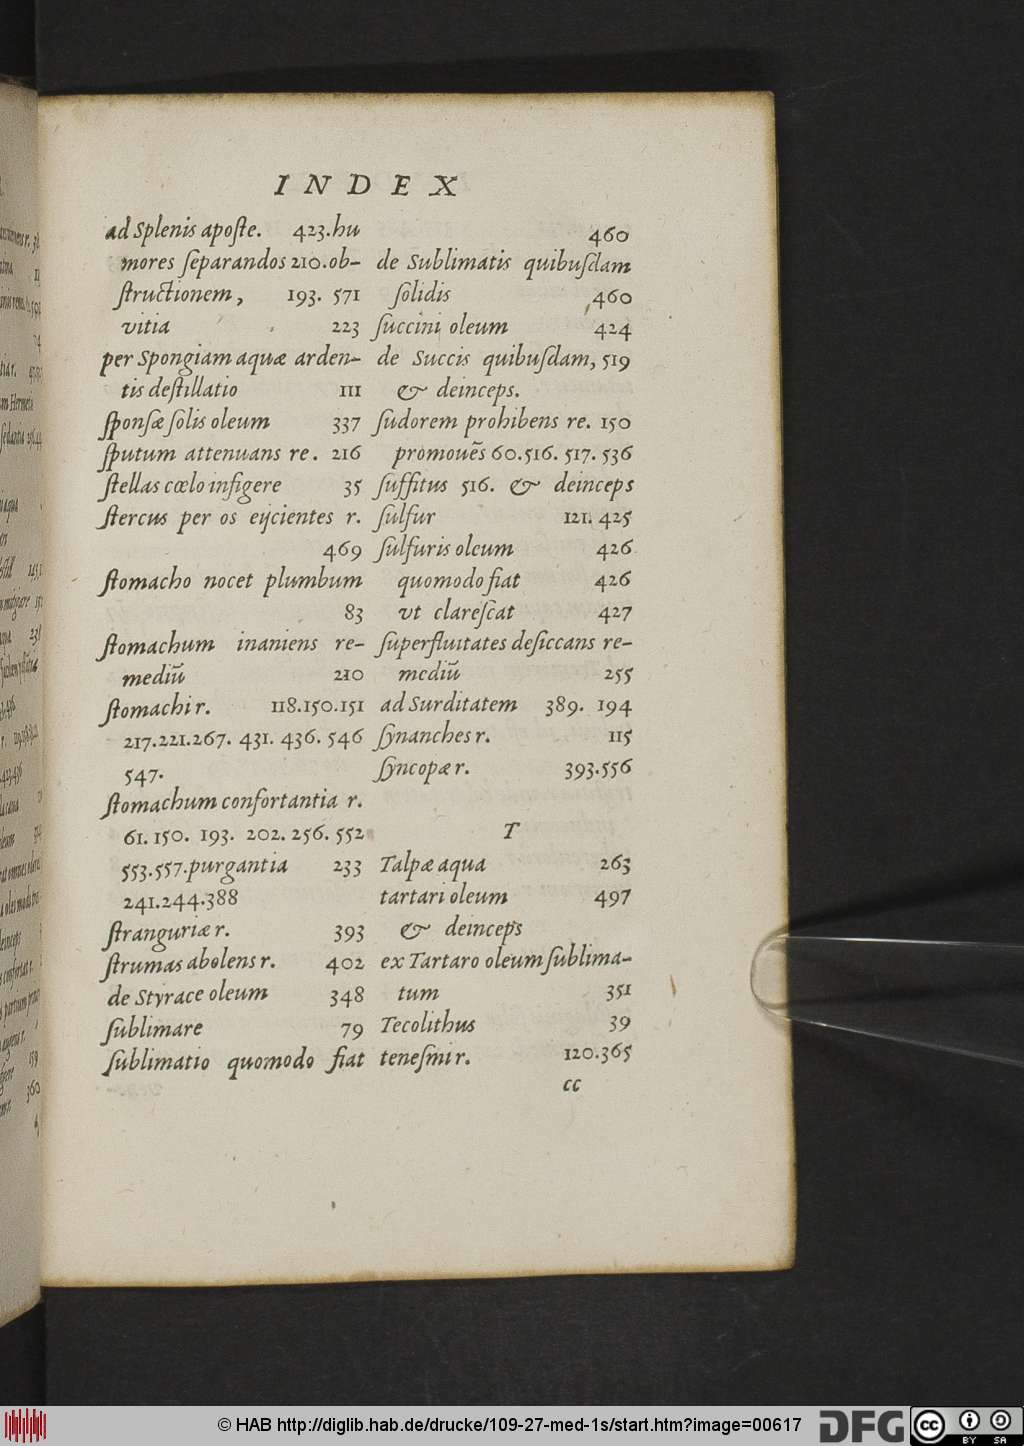 INDEX
ad Splenis aposte. 423.hu
mores separandos 210.ob-
structionem, 193. 571
vitia 223
per Spongiam aquæ arden-
tis destillatio 111
sponsæ solis oleum 337
sputum attenuans re. 216
stellas cœlo infigere 35
stercus per os eijcientes r.
469
stomacho nocet plumbum
83
stomachum inaniens re-
mediũ 210
stomachi r. 118.150.151
217.221.267. 431. 436. 546
547.
stomachum confortantia r.
61. 150. 193. 202. 256. 552
553.557.purgantia 233
241.244.388
stranguriæ r. 393
strumas abolens r. 402
de Styrace oleum 348
sublimare 79
sublimatio quomodo fiat
460
de Sublimatis quibusdam
solidis 460
succini oleum 424
de Succis quibusdam, 519
& deinceps.
sudorem prohibens re. 150
promouẽs 60.516. 517. 536
suffitus 516. & deinceps
sulfur 121. 425
sulfuris oleum 426
quomodo fiat 426
vt clarescat 427
superfluitates desiccans re-
mediũ 255
ad Surditatem 389. 194
synanches r. 115
syncopæ r. 393.556
T
Talpæ aqua 263
tartari oleum 497
& deinceps
ex Tartaro oleum sublima-
tum 351
Tecolithus 39
tenesmi r. 120.365
cc
© HAB http://diglib.hab.de/drucke/109-27-med-1s/start.htm?image=00617
DFG
cc BY SA